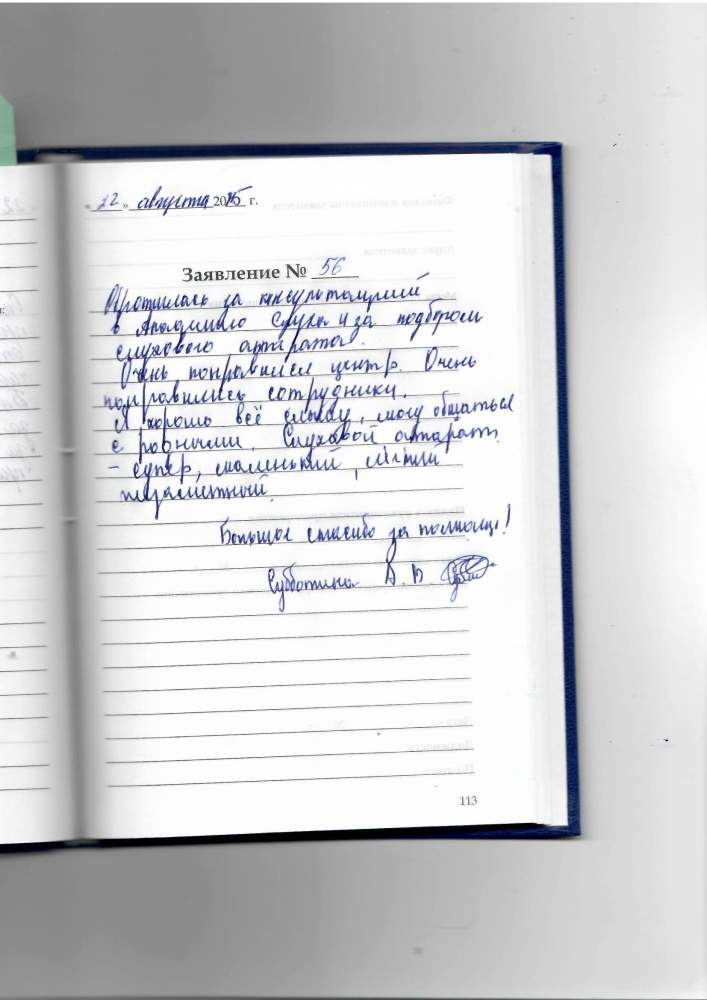 «22» августа 2025 г.
Заявление № 56
Обратилась за консультацией
в Академию Слуха и за подбором
слухового аппарата.
Очень понравился центр. Очень
понравились сотрудники.
Я хорошо всё слышу, могу общаться
с родными. Слуховой аппарат
- супер, маленький,
незаметный.
Большое спасибо за помощь!
Субботина А. В
113